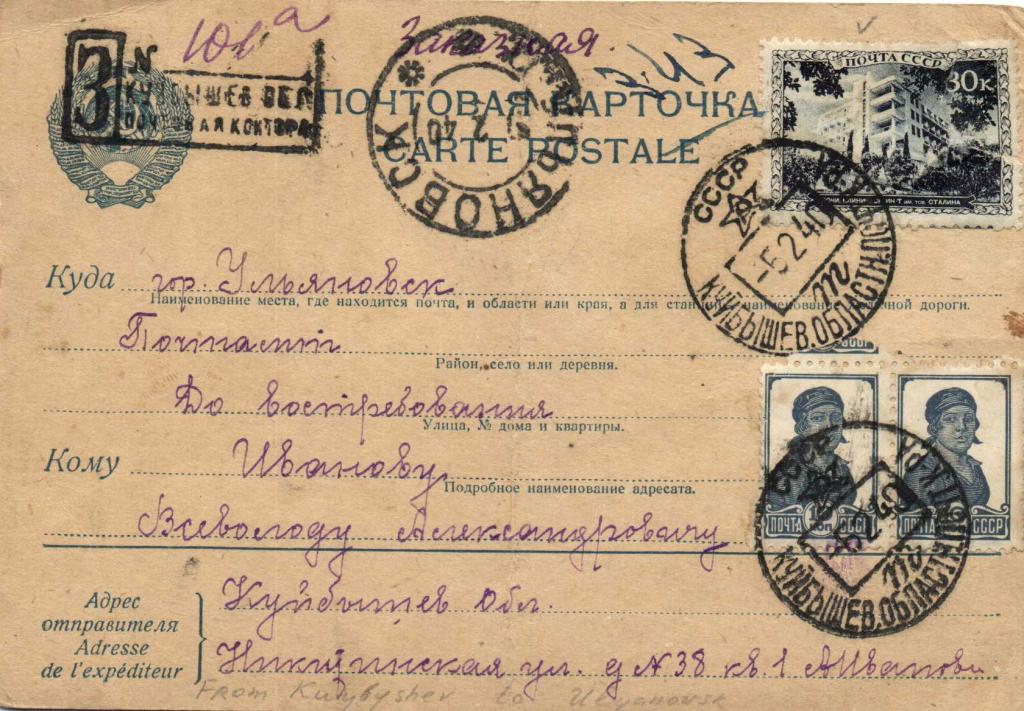 101а
Заказная.
З N
КУЙБЫШЕВ ОБЛ
КОНТОРА
ПОЧТОВАЯ КАРТОЧКА
CARTE POSTALE
УЛЬЯНОВСК
7 2 40
ПОЧТА СССР
30к.
ИМ. ТОВ. СТАЛИНА
СССР
-5 2 40
КУЙБЫШЕВ. ОБЛАСТН.
Куда гор. Ульяновск
Наименование места, где находится почта, и области или края, а для станций наименование железной дороги.
Почтамт
Район, село или деревня.
До востребования
Улица, № дома и квартиры.
Кому Иванову
Подробное наименование адресата.
Всеволоду Александровичу
СССР
ПОЧТА СССР
ПОЧТА СССР
СССР
2 40
КУЙБЫШЕВ. ОБЛАСТН.
Адрес
отправителя
Adresse
de l'expéditeur
Куйбышев обл.
Никитинская ул. д N38 кв. 1 АИванова
From Kuybyshev to Ulyanovsk